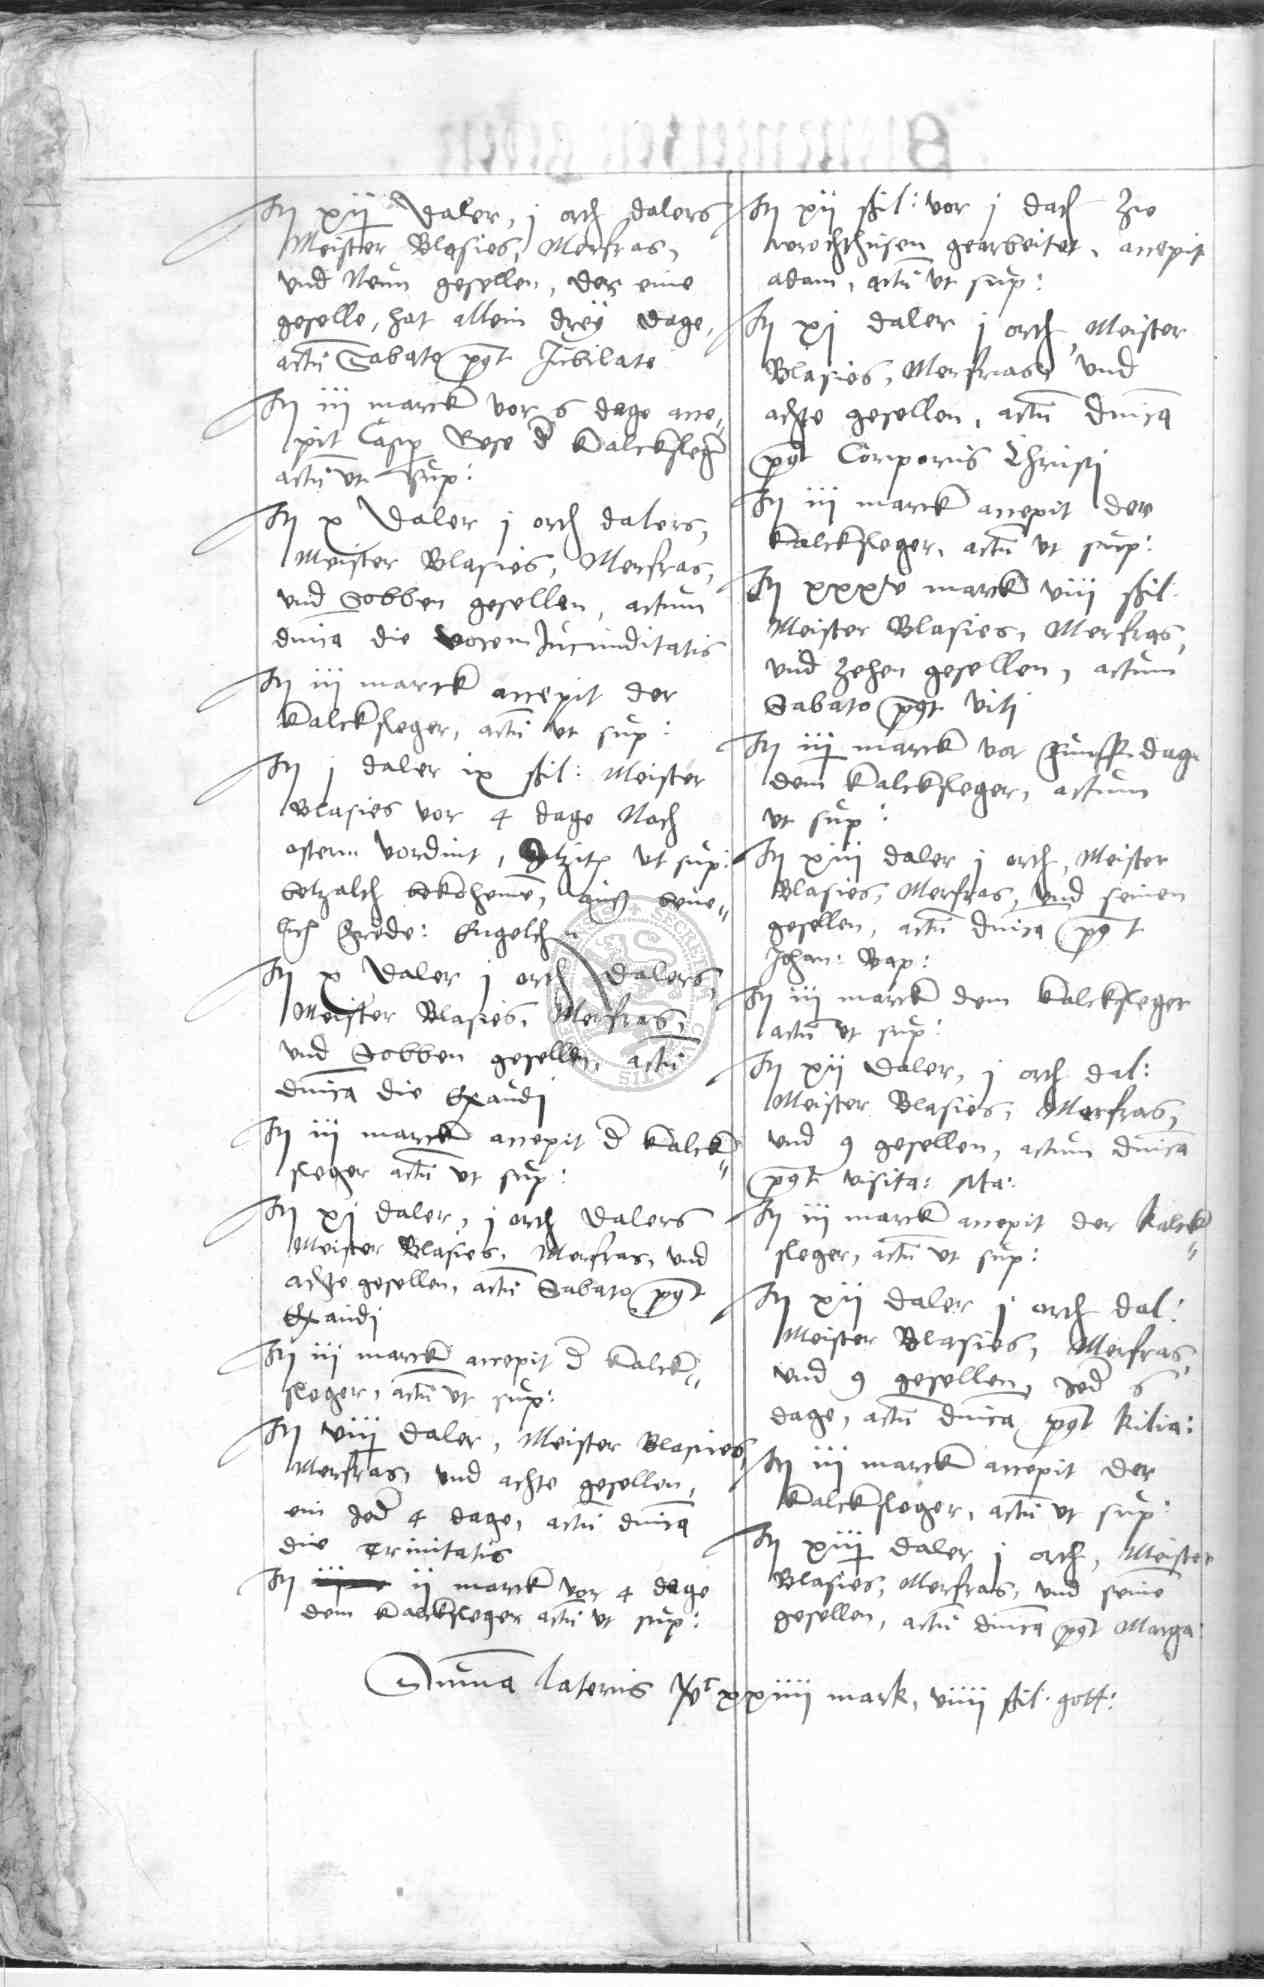 It xij daler, j orth dalers
Meister Blasies, Merfras,
vnd Neun gesellen, der eine
geselle, hat allein drey dage,
actū Sabato post Jubilate
It iij marck vor 6 dage acce„
pit Casp Bese d kalcksleger
actū vt sup:
It x daler j orth dalers,
Meister Blasies, Merfras,
vnd Sobben gesellen, actum
dnica die vocem Jucunditatis
It iij marck accepit der
kalcksleger, actū vt sup:
It j daler ix skil: Meister
Blasies vor 4 dage Noch
ostern vordint, vt sup:
betzalth
It x daler j orth dalers,
Meister Blasies, Merfras,
vnd Sobben gesellen, actū
dnica die Exaudi
It iij marck accepit d kalck„
sleger actū vt sup:
It xj daler, j orth dalers
Meister Blasies, Merfras, vnd
achte gesellen, actū Sabato post
Exaudi
It iij marck accepit d kalck„
sleger, actū vt sup:
It viij daler, Meister Blasies,
Merfras, vnd achte gesellen,
ein jed 4 dage, actū dnica
die Trinitatis
It ij marck vor 4 dage
dem kalcksleger actū vt sup:
It xij skil: vor j dach zu
gearbeitet, accepit
adam, actū vt sup:
It xj daler j orth, Meister
Blasies, Merfras, vnd
achte gesellen, actū dnica
post Corporis Christi
It iij marck accepit der
kalcksleger, actū vt sup:
It marck viij skil:
Meister Blasies, Merfras,
vnd zehen gesellen, actum
Sabato post Viti
It iij marck vor funff dage
dem kalcksleger, actum
vt sup:
It xiij daler j orth, Meister
Blasies, Merfras, vnd seinen
gesellen, actū dnica post
Johan: Bap:
It iij marck dem kalcksleger
actū vt sup:
It xij daler, j orth dal:
Meister Blasies, Merfras,
vnd 9 gesellen, actum dnica
post visita: Ma:
It iij marck accepit der kalck„
sleger, actū vt sup:
It xij daler j orth dal:
Meister Blasies, Merfras,
vnd 9 gesellen, jed 6
dage, actū dnica post Kilia:
It iij marck accepit der
kalcksleger, actū vt sup:
It xiij daler j orth, Meister
Blasies, Merfras, vnd seine
gesellen, actū dnica post Marga:
Suma lateris xxiiij mark, viiij skil: gott: